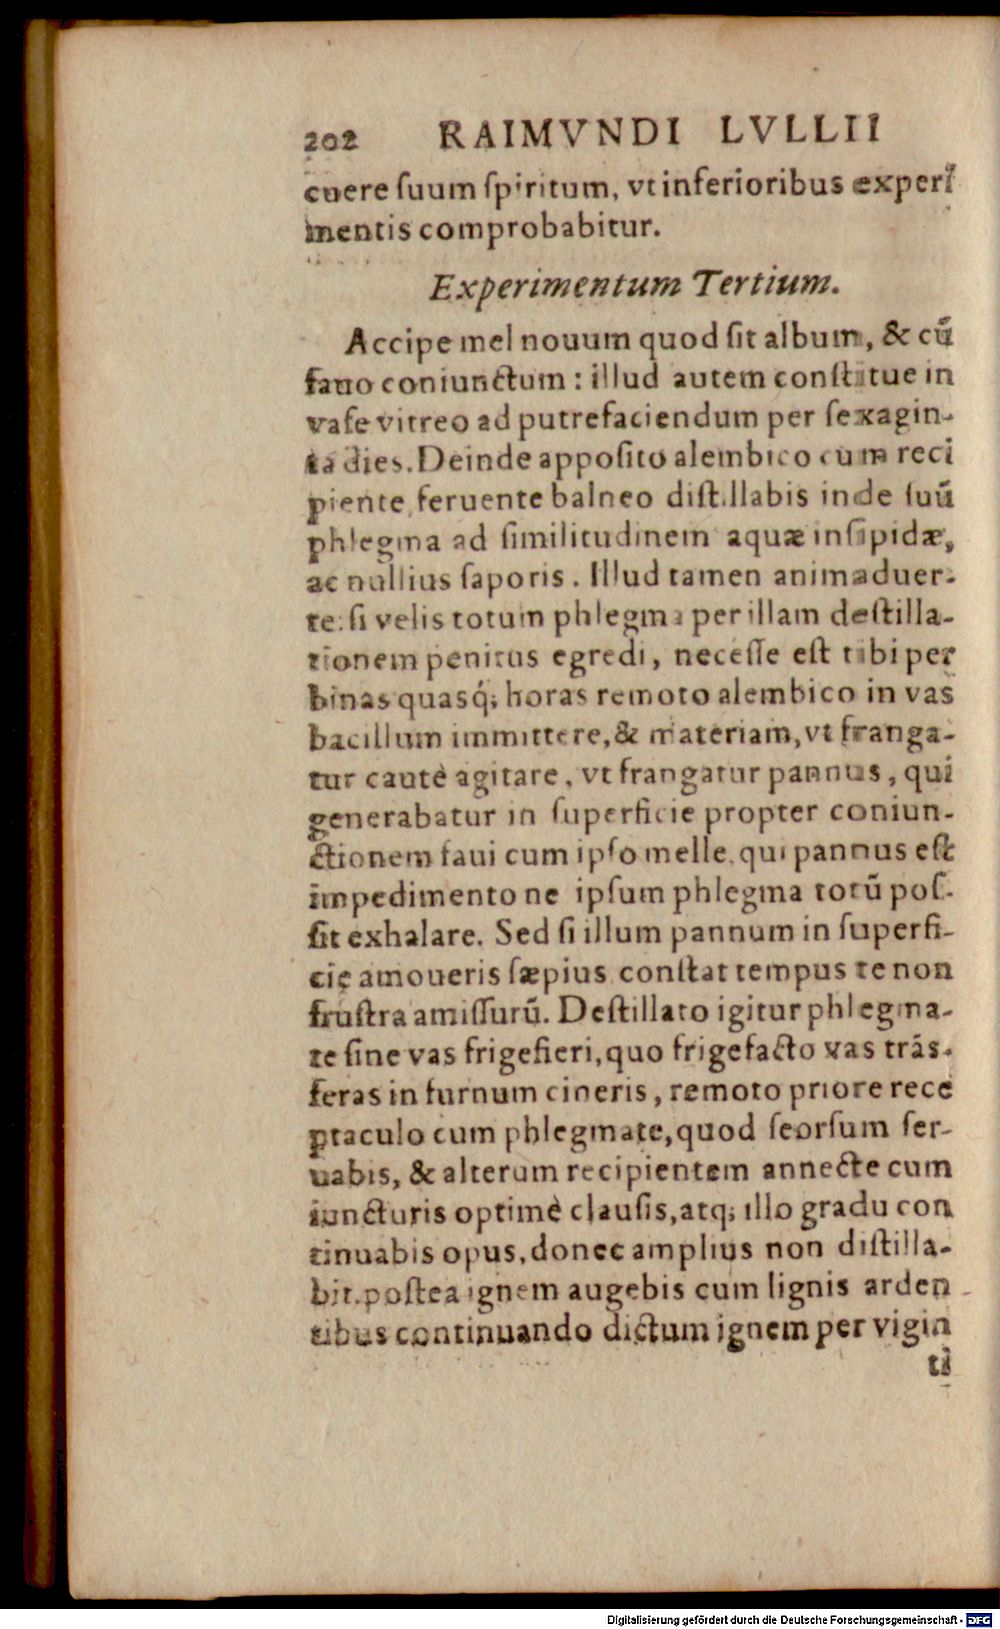 202 RAIMVNDI LVLLII
cuere ſuum ſpiritum, vt inferioribus experi
mentis comprobabitur.
Experimentum Tertium.
Accipe mel nouum quod ſit album, & cū
fauo coniunctum : illud autem conſtitue in
vaſe vitreo ad putrefaciendum per ſexagin-
ta dies. Deinde appoſito alembico cum reci
piente, feruente balneo diſtillabis inde ſuū
phlegma ad ſimilitudinem aquæ inſipidæ,
ac nullius ſaporis. Illud tamen animaduer-
te: ſi velis totum phlegma per illam deſtilla-
tionem penitus egredi, neceſſe eſt tibi per
binas quasq́; horas remoto alembico in vas
bacillum immittere, & materiam, vt franga-
tur cautè agitare, vt frangatur pannus, qui
generabatur in ſuperficie propter coniun-
ctionem faui cum ipſo melle, qui pannus eſt
impedimento ne ipſum phlegma totū poſ-
ſit exhalare. Sed ſi illum pannum in ſuperfi-
cie amoueris ſæpius, conſtat tempus te non
fruſtra amiſſurū. Deſtillato igitur phlegma-
te ſine vas frigefieri, quo frigefacto vas trāſ-
feras in furnum cineris, remoto priore rece
ptaculo cum phlegmate, quod ſeorſum ſer-
uabis, & alterum recipientem annecte cum
iuncturis optimè clauſis, atq; illo gradu con
tinuabis opus, donec amplius non diſtilla-
bit. poſtea ignem augebis cum lignis arden
tibus continuando dictum ignem per vigin
ti
Digitalisierung gefördert durch die Deutsche Forschungsgemeinschaft - DFG